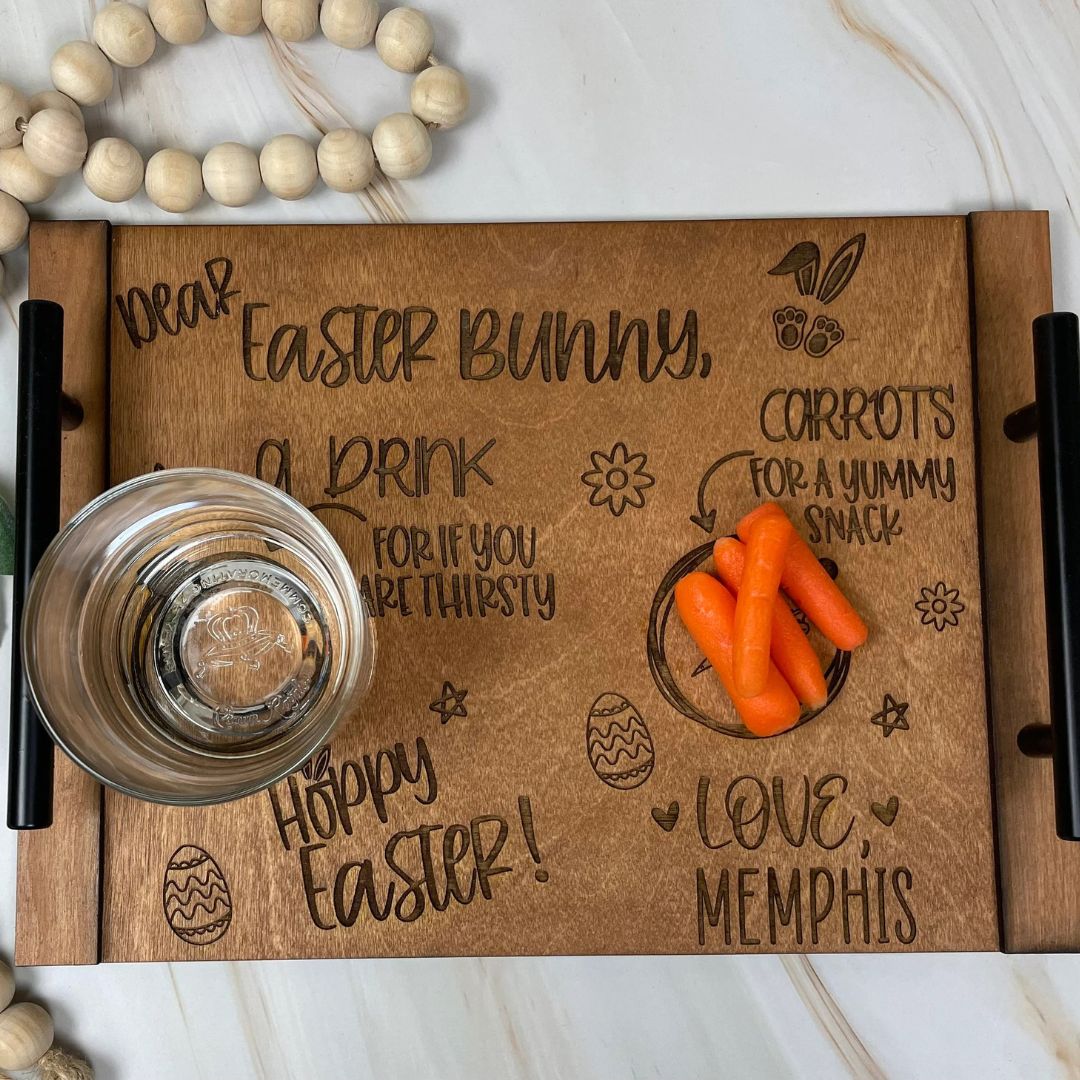 Dear
Easter Bunny,
a Drink
FOR IF YOU
ARE THIRSTY
CARROTS
FOR A YUMMY
SNACK
Hoppy
Easter!
LOVE,
MEMPHIS
COMMEMORATING